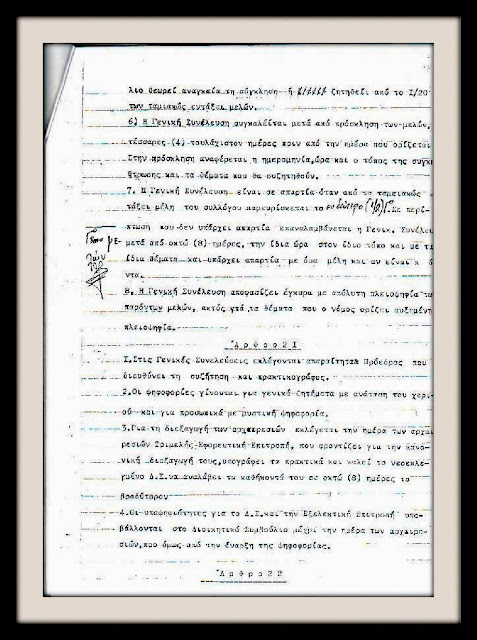 λιο θεωρεί αναγκεία τη σύγκληση ή ζητηθεί από το Ι/20
των ταμιακώς εντάξει μελών.
6) Η Γενική Συνέλευση συγκαλείται μετά από πρόσκληση των μελών,
τέσσαρες (4) τουλάχιστον ημέρες πριν από την ημέρα που ορίζεται
Στην πρόσκληση αναφέρεται η ημερομηνία,ώρα και ο τόπος της συγκ
θα συζητηθούν.
7. Η Γενική Συνέλευση είναι σε απαρτία όταν από τα ταμειακώς
τάξει μέλη του συλλόγου παρευρίσκεται το εν δεύτερο (1/2). Σε περί
πτωση που δεν υπάρχει απαρτία επαναλαμβάνεται η Γενικ. Συνέλευ
μετά από οκτώ (8) ημέρες, την ίδια ώρα στον ίδιο τόπο και με τα
ίδια θέματα και υπάρχει απαρτία με όσα μέλη και αν είναι
ντα.
8. Η Γενική Συνέλευση αποφασίζει έγκυρα με απόλυτη πλειοψηφία τω
παρόντων μελών, εκτός γιά τα θέματα που ο νόμος ορίζει αυξημένη
πλειοψηφία.
Άρθρο 21
Ι.Στις Γενικές Συνελεύσεις εκλέγονται απαραίτητα Πρόεδρος που
διευθύνει τη συζήτηση και πρακτικογράφος.
2.Οι ψηφοφορίες γίνονται για γενικά ζητήματα με ανάταση του χερι
ού και για προσωπικά με μυστική ψηφοφορία.
3.Για τη διεξαγωγή των αρχαιρεσιών εκλέγεται την ημέρα των αρχαι
ρεσιών Τριμελής Εφορευτική Επιτροπή, που φροντίζει για την κανο-
νική διεξαγωγή τους,υπογράφει τα πρακτικά και καλεί το νεοεκλε-
γμένο Δ.Σ.να αναλάβει τα καθήκοντά του σε οκτώ (8) ημέρες το
βραδύτερον
4.Οι υποψηφιότητες για το Δ.Σ.και την Εξελεκτική Επιτροπή υπο-
βάλλονται στο Διοικητικό Συμβούλιο μέχρι την ημέρα των αρχαιρε-
σιών,προ όμως από την έναρξη της ψηφοφορίας.
Άρθρο 22